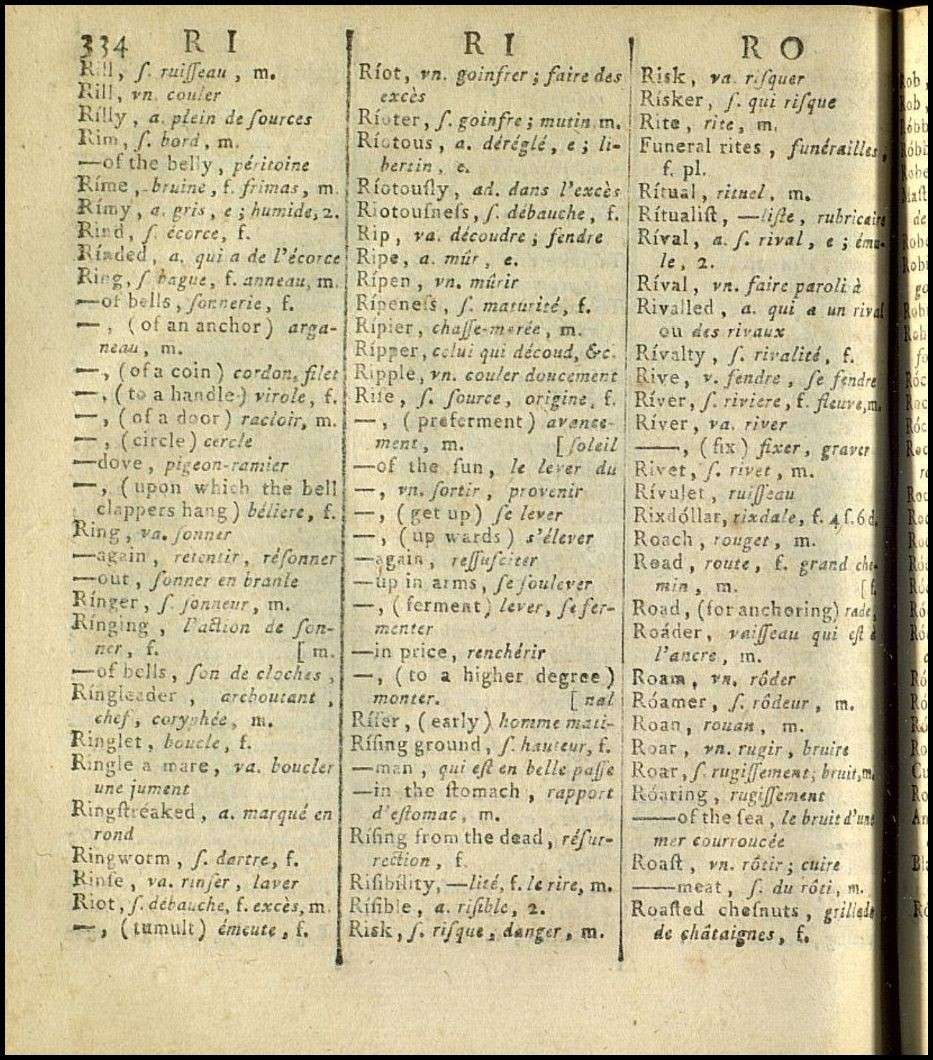 334 R I
Rill, ſ. ruiſſeau, m.
Rill, vn. couler
Rílly, a. plein de ſources
Rim, ſ. bord, m.
—of the belly, péritoine
Ríme, bruine, f. frimas, m.
Rímy, a. gris, e; humide, 2.
Rind, ſ. écorce, f.
Rínded, a. qui a de l'écorce
Ring, ſ bague, f. anneau, m.
—of bells, ſonnerie, f.
—, (of an anchor) arga-
neau, m.
—, (of a coin) cordon, filet
—, (to a handle) virole, f.
—, (of a door) racloir, m.
—, (circle) cercle
—dove, pigeon-ramier
—, (upon which the bell
clappers hang) béliere, f.
Ring, va. ſonner
—again, retentir, réſonner
—out, ſonner en branle
Rínger, ſ. ſonneur, m.
Rínging, l'action de ſon-
ner, f. [ m.
—of bells, ſon de cloches,
Ríngleader, arcboutant,
chef, coryphée, m.
Ringlet, boucle, f.
Ringle a mare, va. boucler
une jument
Ringſtreaked, a. marqué en
rond
Ringworm, ſ. dartre, f.
Rinſe, va. rinſer, laver
Riot, ſ. débauche, f. excès, m.
—, (tumult) émeute, f.
R I
Ríot, vn. goinfrer; faire des
excès
Ríoter, ſ. goinfre; mutin m.
Ríotous, a. déréglé, e; li-
bertin, e.
Ríotouſly, ad. dans l'excès
Riotouſneſs, ſ. débauche, f.
Rip, va. découdre; fendre
Ripe, a. mûr, e.
Rípen, vn. mûrir
Rípeneſs, ſ. maturité, f.
Rípier, chaſſe-marée, m.
Rípper, celui qui découd, &c.
Ripple, vn. couler doucement
Riſe, ſ. ſource, origine, f.
—, (preferment) avance-
ment, m. [ ſoleil
—of the ſun, le lever du
—, vn. ſortir, provenir
—, (get up) ſe lever
—, (up wards) s'élever
—again, reſſuſciter
—up in arms, ſe ſoulever
—, (ferment) lever, ſe fer-
menter
—in price, renchérir
—, (to a higher degree)
monter. [ nal
Ríſer, (early) homme mati-
Ríſing ground, ſ. hauteur, f.
—man, qui eſt en belle paſſe
—in the ſtomach, rapport
d'eſtomac, m.
Ríſing from the dead, réſur-
rection, f.
Riſibílity, —lité, f. le rire, m.
Ríſible, a. riſible, 2.
Risk, ſ. riſque, danger, m.
R O
Risk, va. riſquer
Rísker, ſ. qui riſque
Rite, rite, m.
Funeral rites, funérailles,
f. pl.
Rítual, rituel, m.
Rítualiſt, —liſte, rubricaire
Ríval, a. ſ. rival, e; ému-
le, 2.
Ríval, vn. faire paroli à
Rivalled, a. qui a un rival
ou des rivaux
Rívalty, ſ. rivalité, f.
Rive, v. fendre, ſe fendre
Ríver, ſ. riviere, f. fleuve, m.
Ríver, va. river
——, (fix) fixer, graver
Rivet, ſ. rivet, m.
Rívulet, ruiſſeau
Rixdóllar, rixdale, f. 4 ſ. 6 d.
Roach, rouget, m.
Road, route, f. grand che-
min, m. [ f.
Road, (for anchoring) rade,
Roáder, vaiſſeau qui eſt à
l'ancre, m.
Roam, vn. rôder
Róamer, ſ. rôdeur, m.
Roan, rouan, m.
Roar, vn. rugir, bruire
Roar, ſ. rugiſſement; bruit, m.
Róaring, rugiſſement
——of the ſea, le bruit d'une
mer courroucée
Roaſt, vn. rôtir; cuire
——meat, ſ. du rôti, m.
Roaſted cheſnuts, grillade
de châtaignes, f.